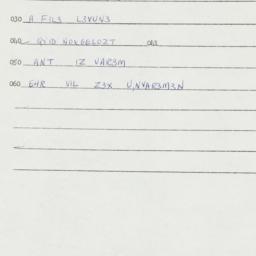 030 A FIL3 L3VUN3
040 QVID NOVGELOZT 043
050 ANT IZ VAR3M
060 GHR VIL Z3X V,NVAR3M3N